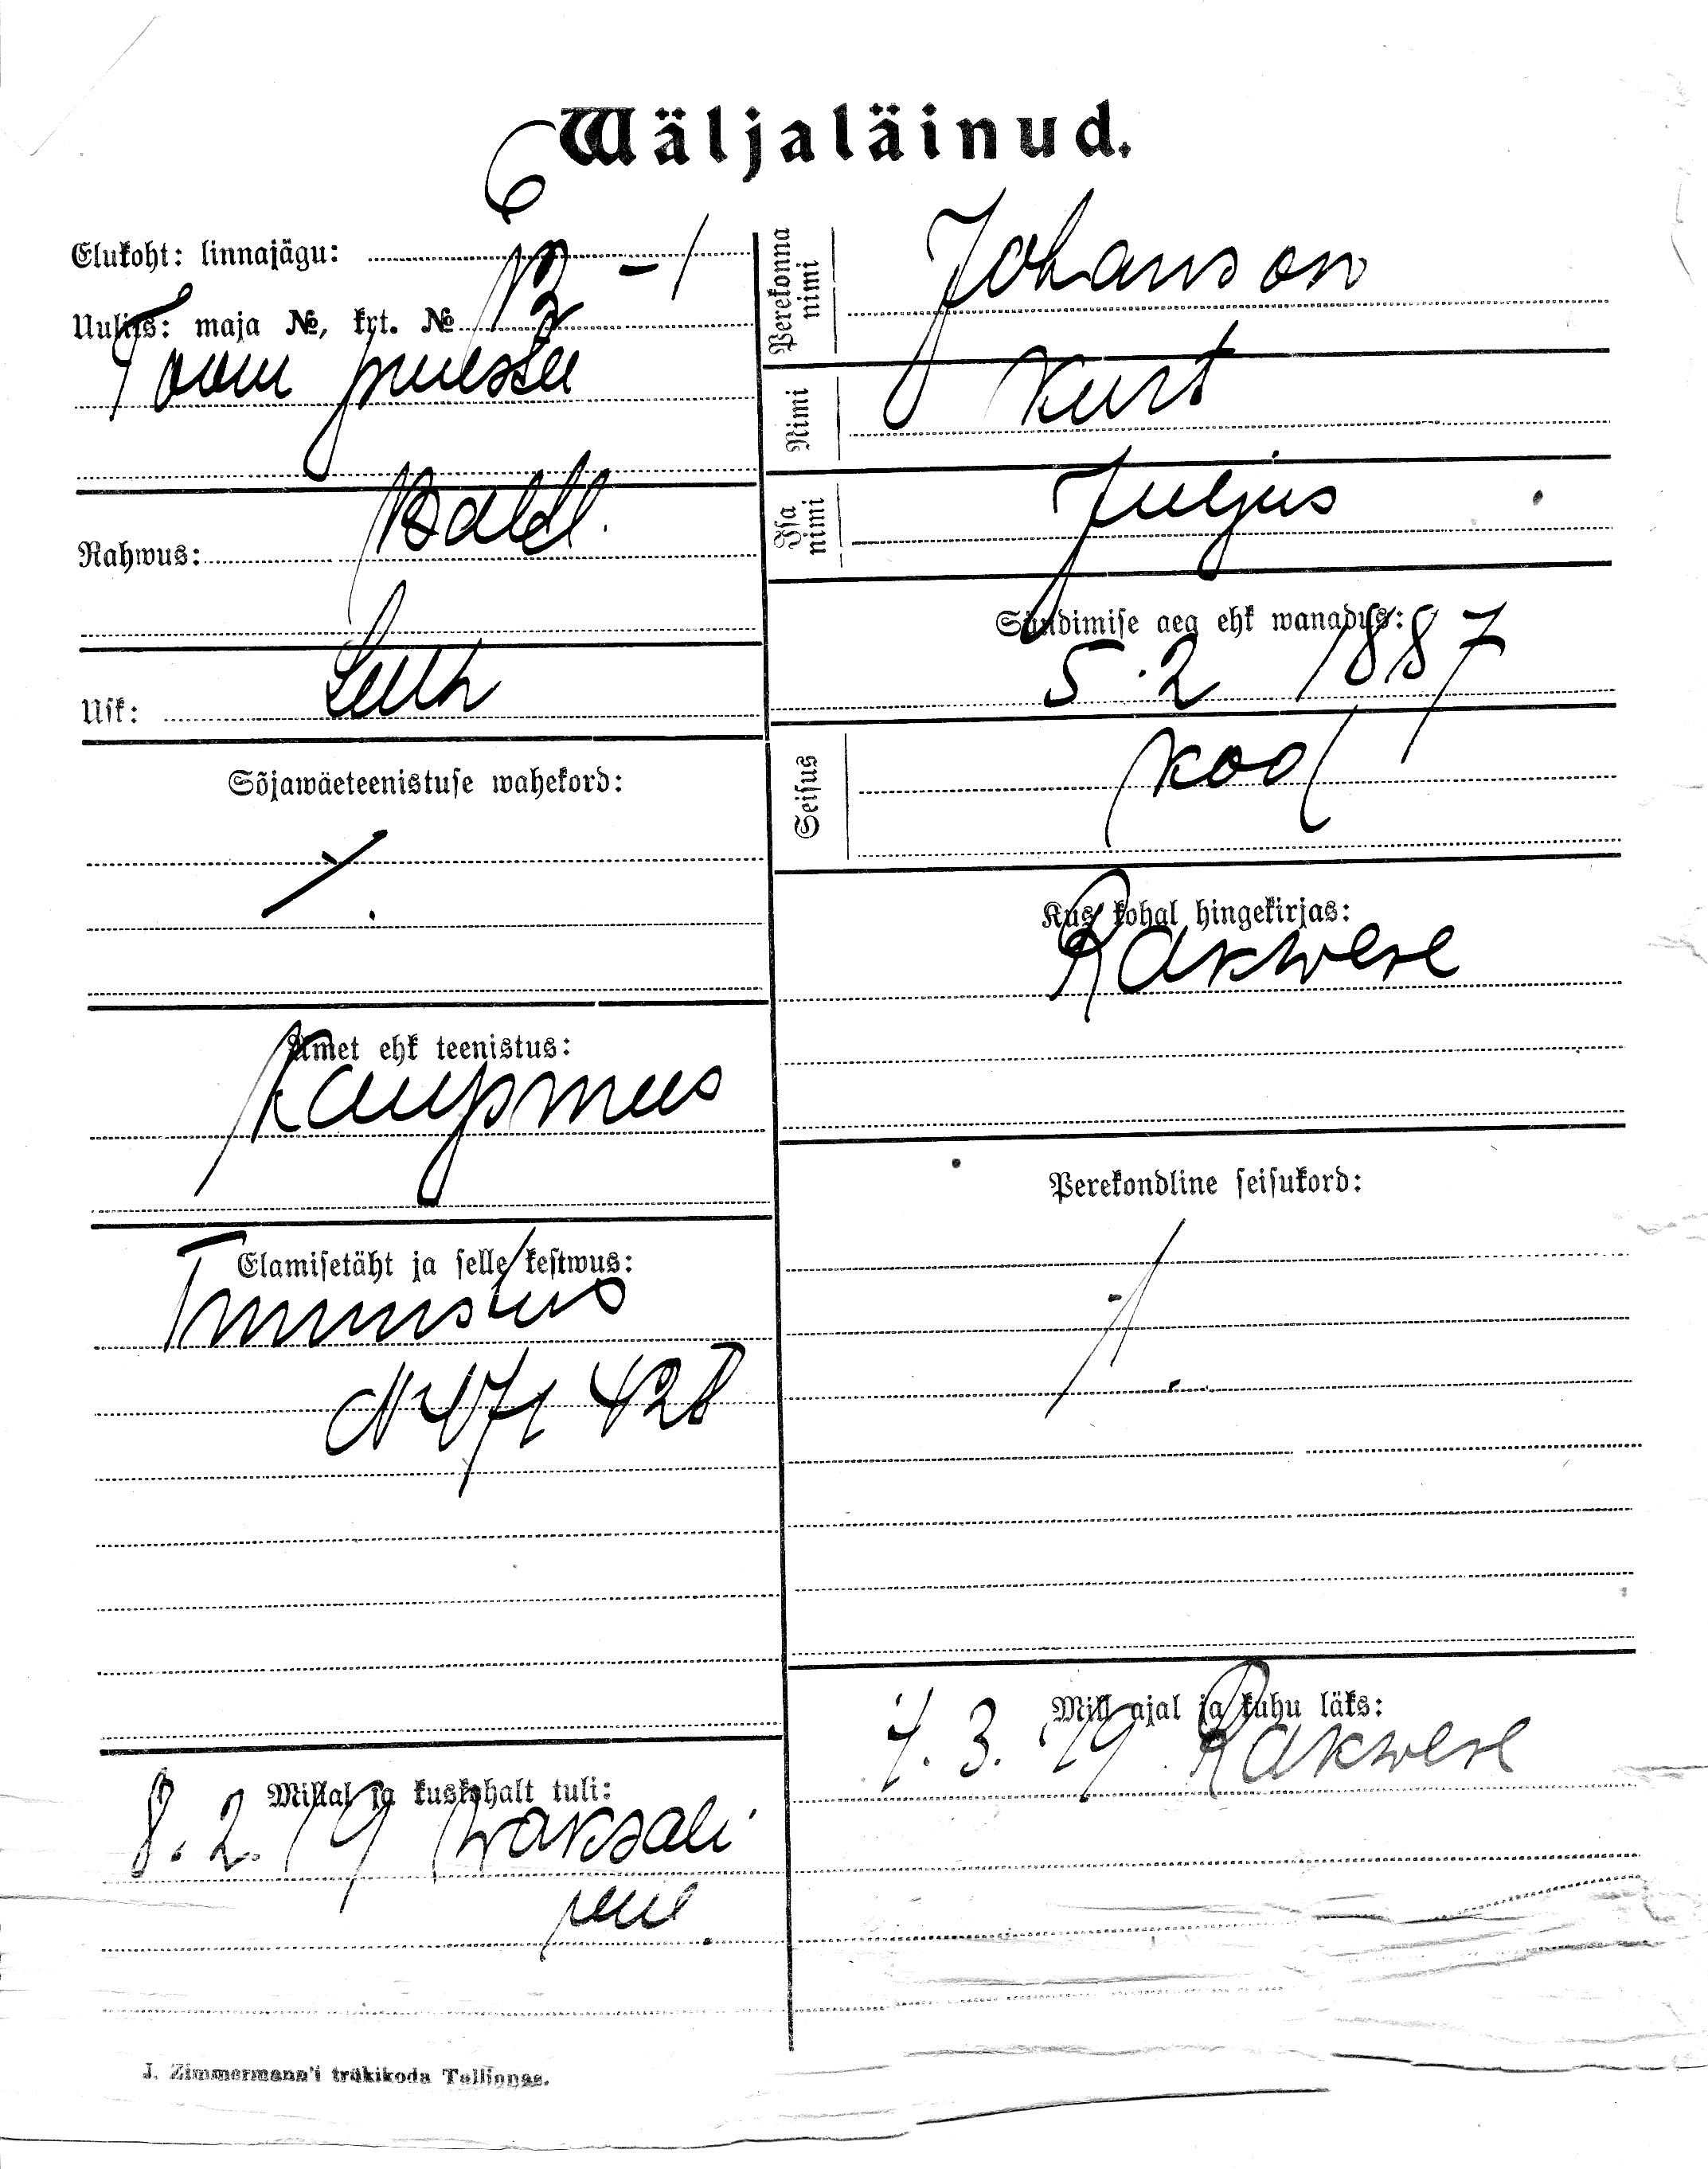 Wäljaläinud.
6
Elukoht: linnajägu:
Uulits: maja №, krt. № 13 - 1
Toom puiestee
Rahwus: Baltl.
Usk: Luth
Sõjawäeteenistuse wahekord:
Amet ehk teenistus:
Kaupmees
Elamisetäht ja selle kestwus:
Tunnistus
428
Millal ja kuskohalt tuli:
8. 2. 19 Waksali
puie.
J. Zimmermann'i trükikoda Tallinnas.
Perekonna nimi Johanson
Nimi Kurt
Isa nimi Juljus
Sündimise aeg ehk wanadus:
5. 2 1887
Seisus kod
Kus kohal hingekirjas:
Rakwere
Perekondline seisukord:
Mill ajal ja kuhu läks:
4. 3. 19 Rakwere